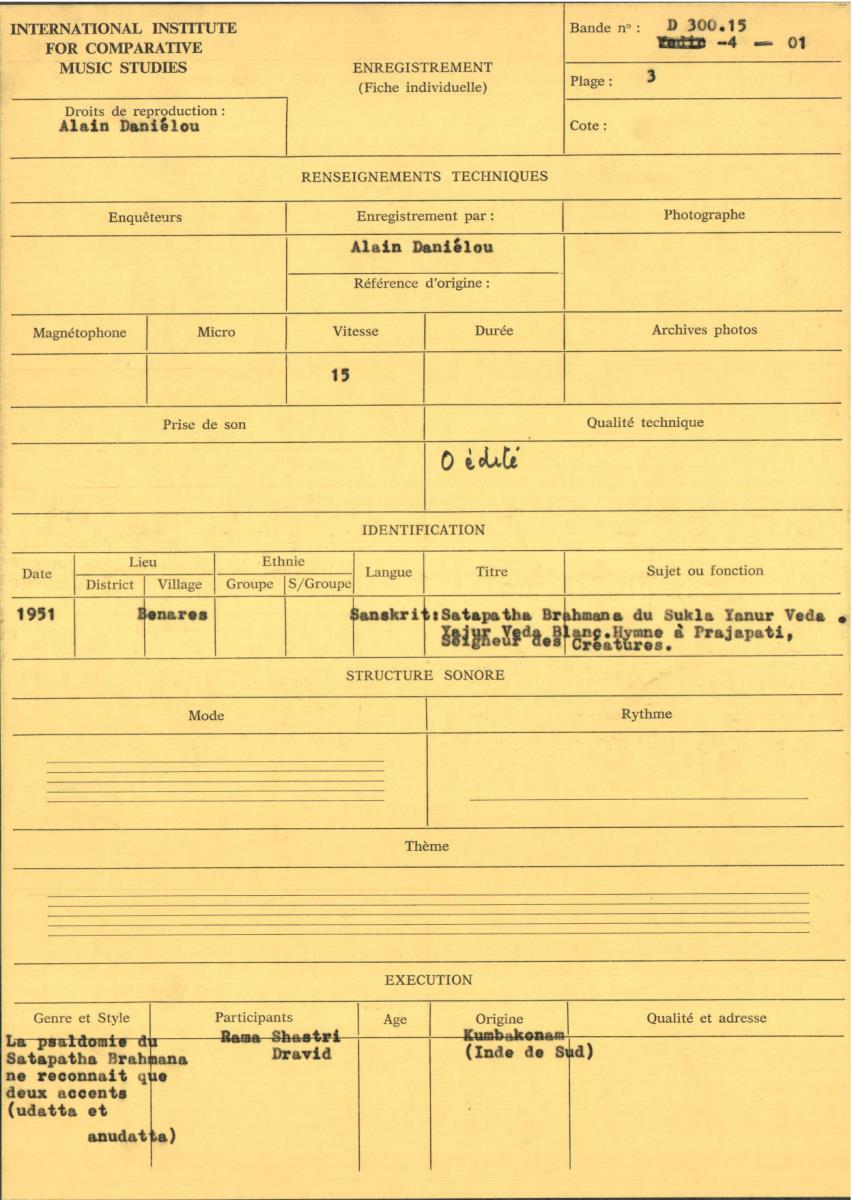 INTERNATIONAL INSTITUTE
FOR COMPARATIVE
MUSIC STUDIES
Droits de reproduction :
Alain Daniélou
ENREGISTREMENT
(Fiche individuelle)
Bande nº : D 300.15
-4 — 01
Plage : 3
Cote :
RENSEIGNEMENTS TECHNIQUES
Enquêteurs
Enregistrement par :
Photographe
Alain Daniélou
Référence d'origine :
Magnétophone
Micro
Vitesse
Durée
Archives photos
15
Prise de son
Qualité technique
0 édité
IDENTIFICATION
Date
Lieu
Ethnie
Langue
Titre
Sujet ou fonction
District
Village
Groupe
S/Groupe
1951
Benares
Sanskrit:
Satapatha Brahmana du Sukla Yanur Veda .
Yajur Veda Blanc.Hymne à Prajapati,
Seigneur des Créatures.
STRUCTURE SONORE
Mode
Rythme
Thème
EXECUTION
Genre et Style
Participants
Age
Origine
Qualité et adresse
La psaldomie du
Satapatha Brahmana
ne reconnait que
deux accents
(udatta et
anudatta)
Rama Shastri
Dravid
Kumbakonam
(Inde de Sud)